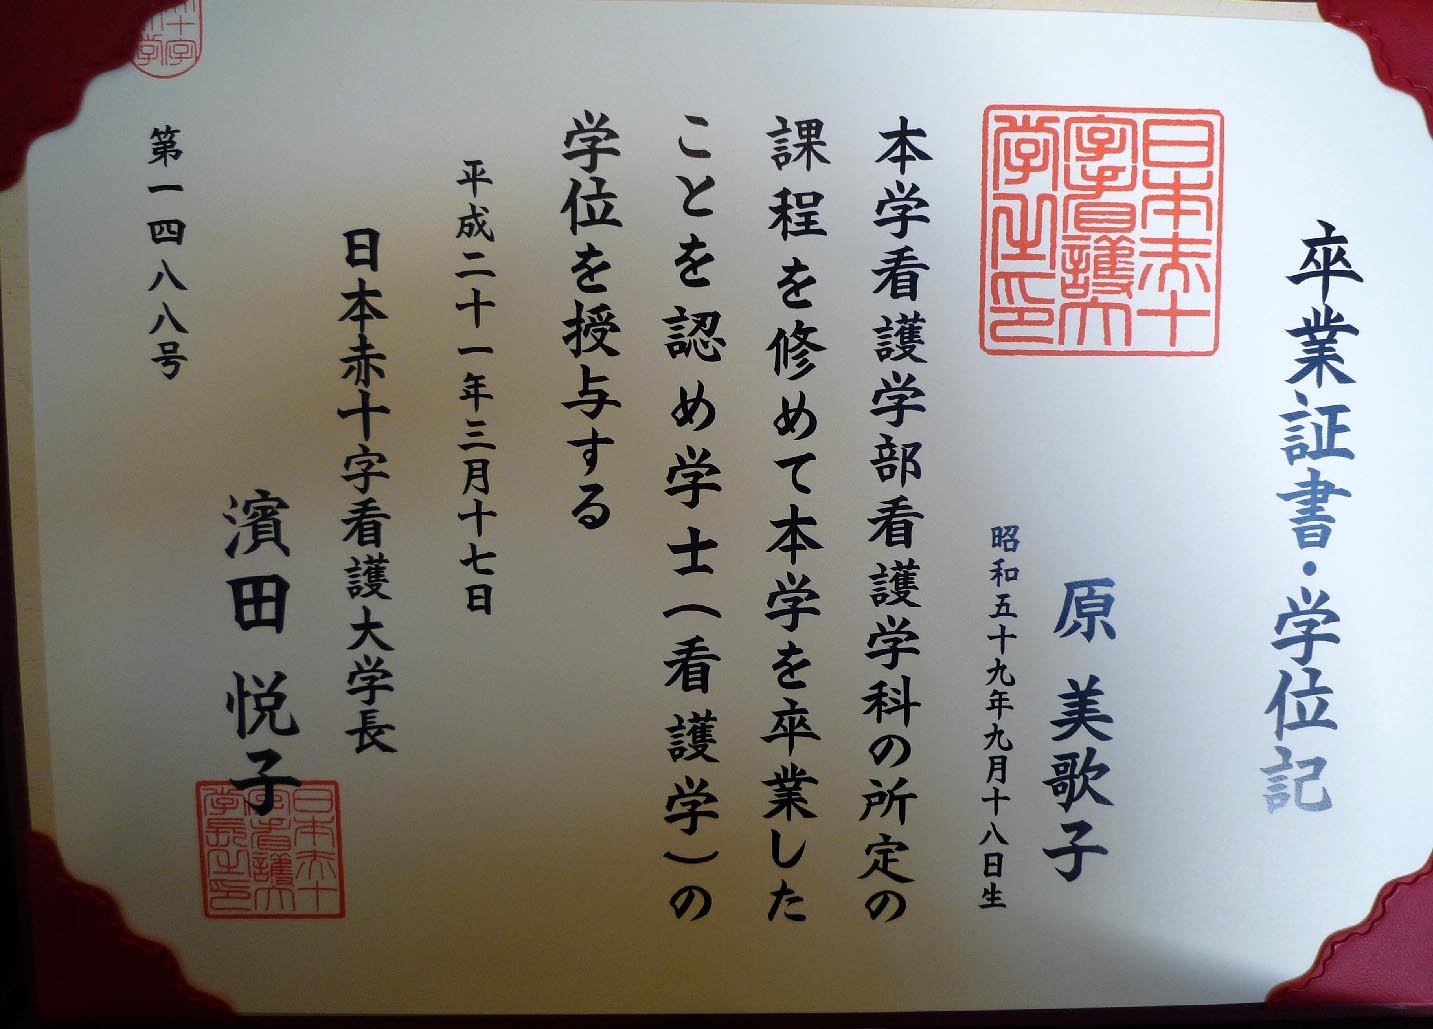 卒業証書・学位記
日本赤十
字看護大
学之印
原 美歌子
昭和五十九年九月十八日生
本学看護学部看護学科の所定の
課程を修めて本学を卒業した
ことを認め学士(看護学)の
学位を授与する
平成二十一年三月十七日
日本赤十字看護大学長
濱田 悦子
日本赤十
字看護大
学長之印
第一四八八号